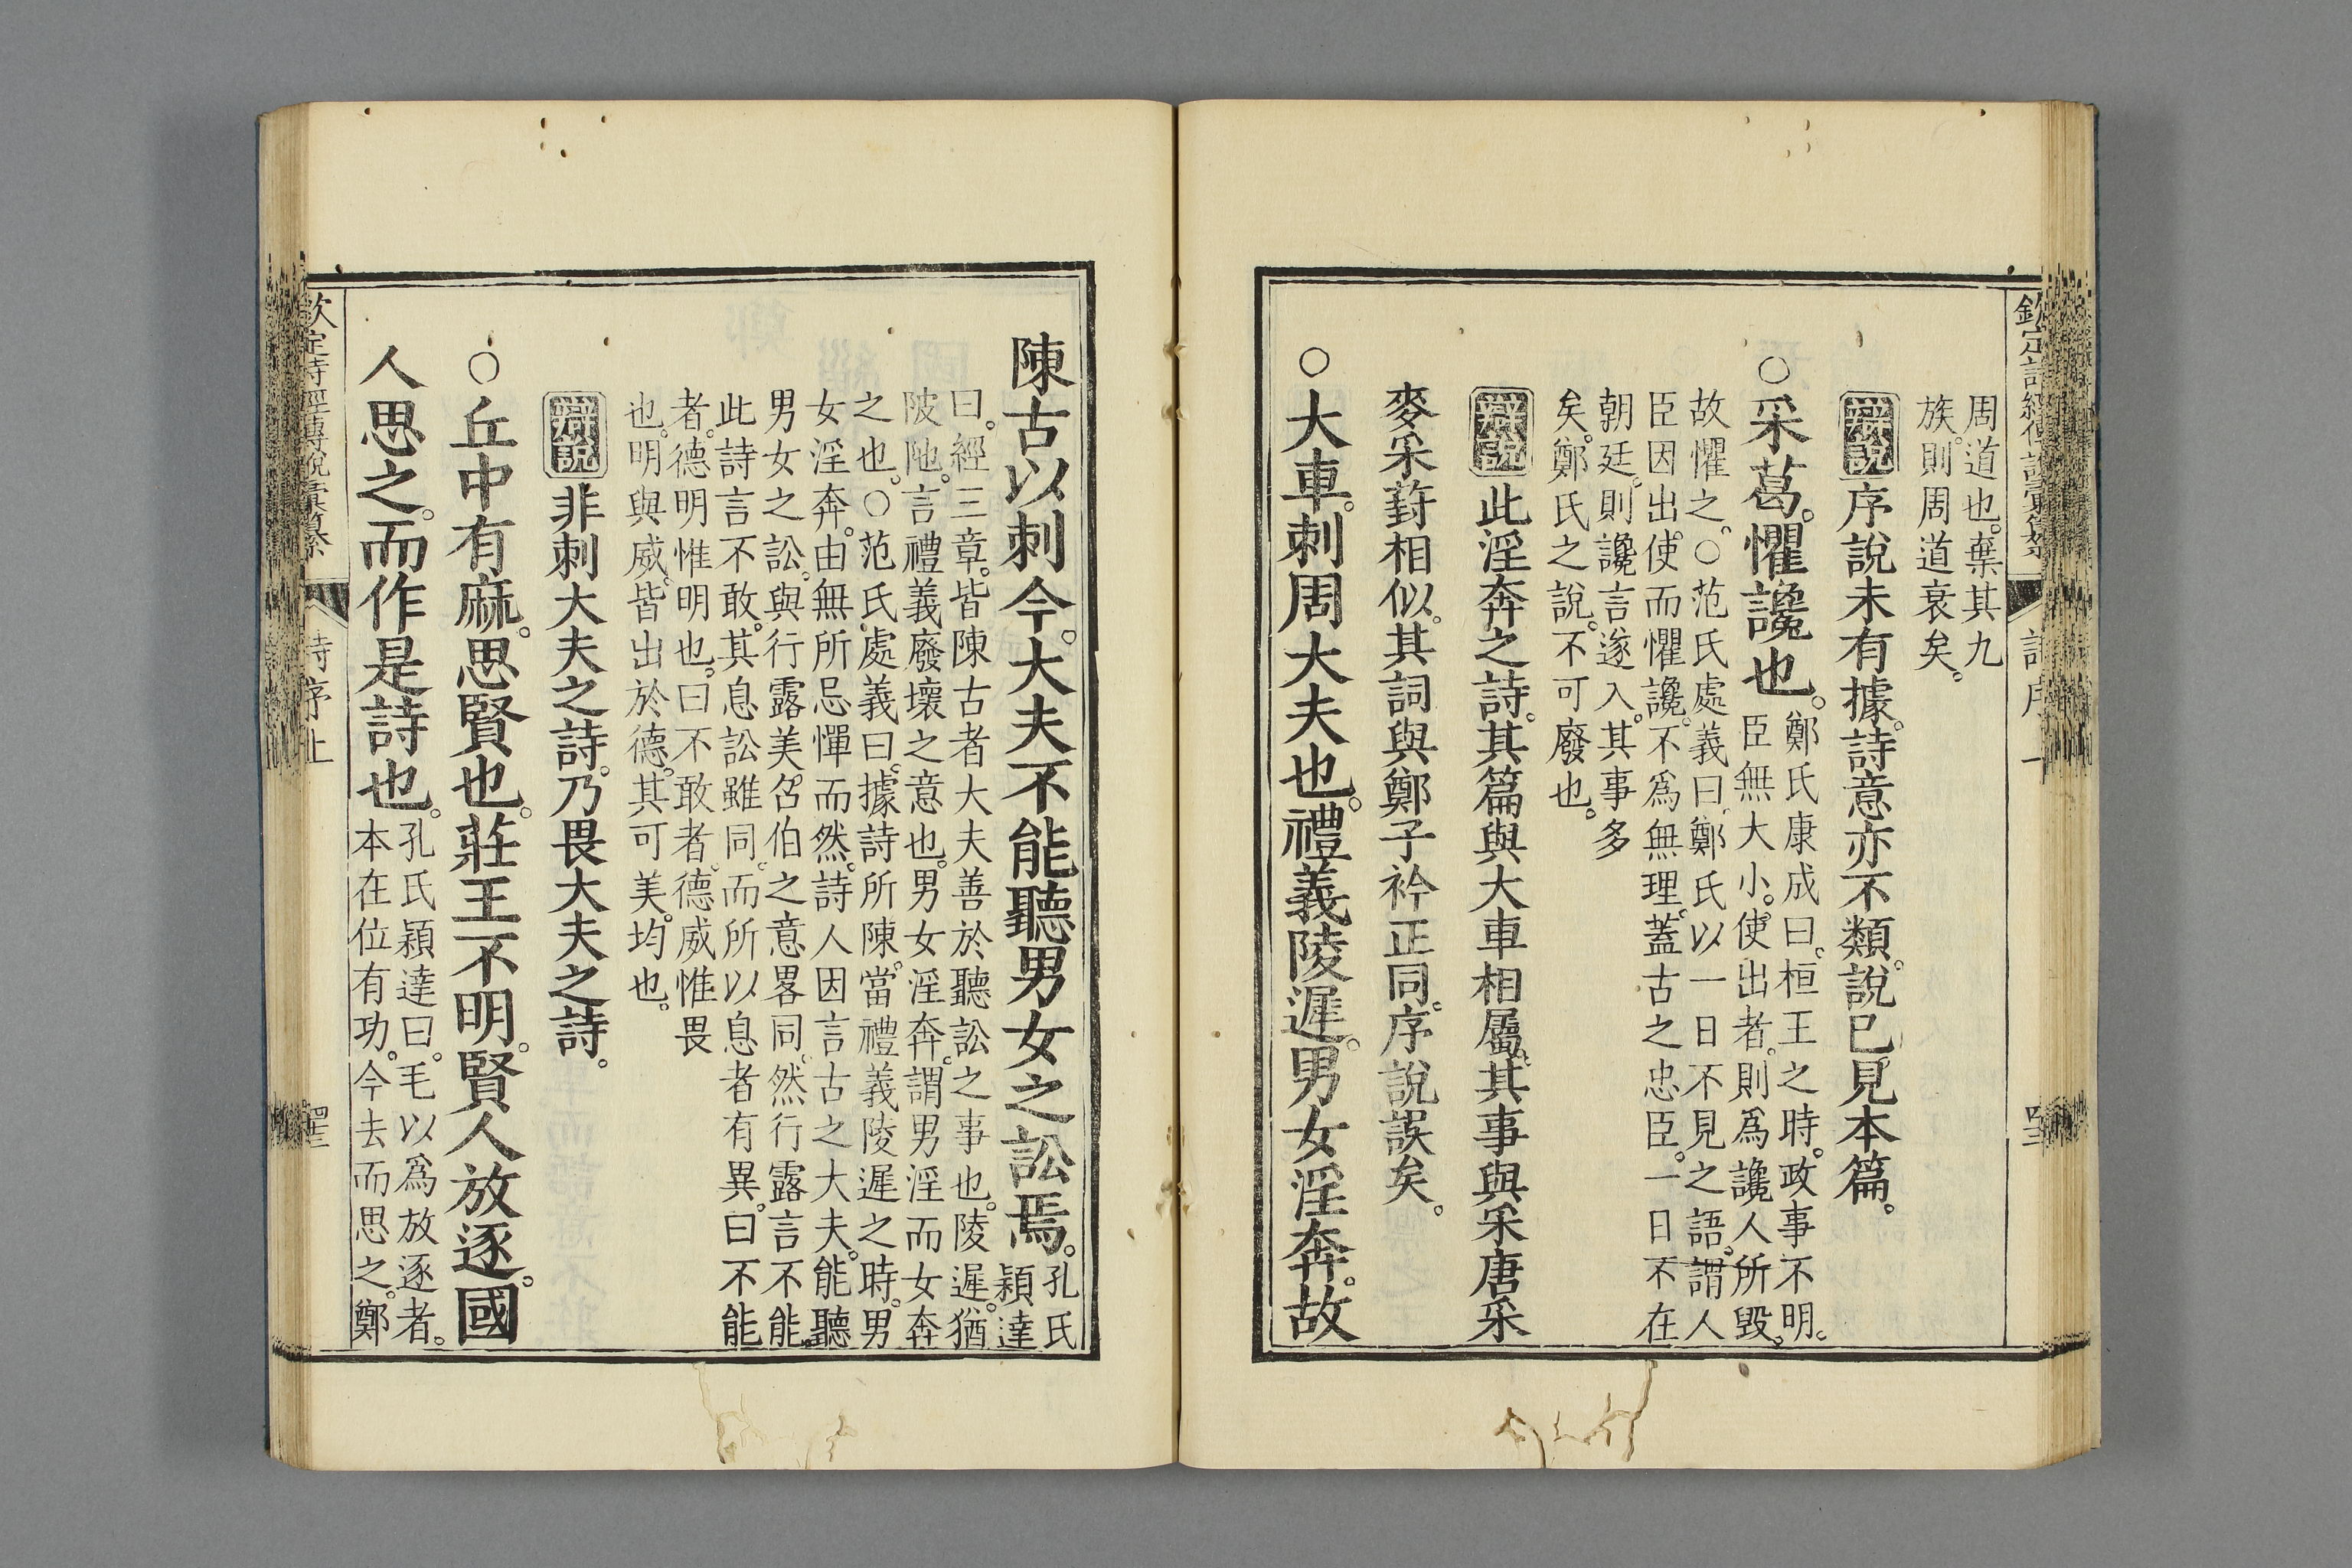 周道也。棄其九
族。則周道衰矣。
辯說序說未有據。詩意亦不類。說已見本篇。
○采葛。懼讒也。鄭氏康成曰。桓王之時。政事不明。
臣無大小。使出者。則爲讒人所毀。
故懼之。○范氏處義曰。鄭氏以一日不見之語。謂人
臣因出使。而懼讒。不爲無理。蓋古之忠臣。一日不在
朝廷。則讒言遂入。其事多
矣。鄭氏之說。不可廢也。
辯說此淫奔之詩。其篇與大車相屬。其事與采唐采
麥采葑相似。其詞與鄭子衿正同。序說誤矣。
○大車。刺周大夫也。禮義陵遲。男女淫奔。故
陳古以刺今。大夫不能聽男女之訟焉。孔氏
穎達
曰。經三章。皆陳古者大夫善於聽訟之事也。陵遲。猶
陂阤。言禮義廢壞之意也。男女淫奔。謂男淫而女奔
之也。○范氏處義曰。據詩所陳。當禮義陵遲之時。男
女淫奔。由無所忌憚而然。詩人因言古之大夫。能聽
男女之訟。與行露美召伯之意畧同。然行露言不能。
此詩言不敢。其息訟雖同。而所以息者有異。曰不能
者。德明惟明也。曰不敢者。德威惟畏
也。明與威。皆出於德。其可美。均也。
辯說非刺大夫之詩。乃畏大夫之詩。
○丘中有麻。思賢也。莊王不明。賢人放逐。國
人思之。而作是詩也。孔氏穎達曰。毛以爲放逐者。
本在位有功。今去而思之。鄭
欽定詩經傳說彙纂
詩序上